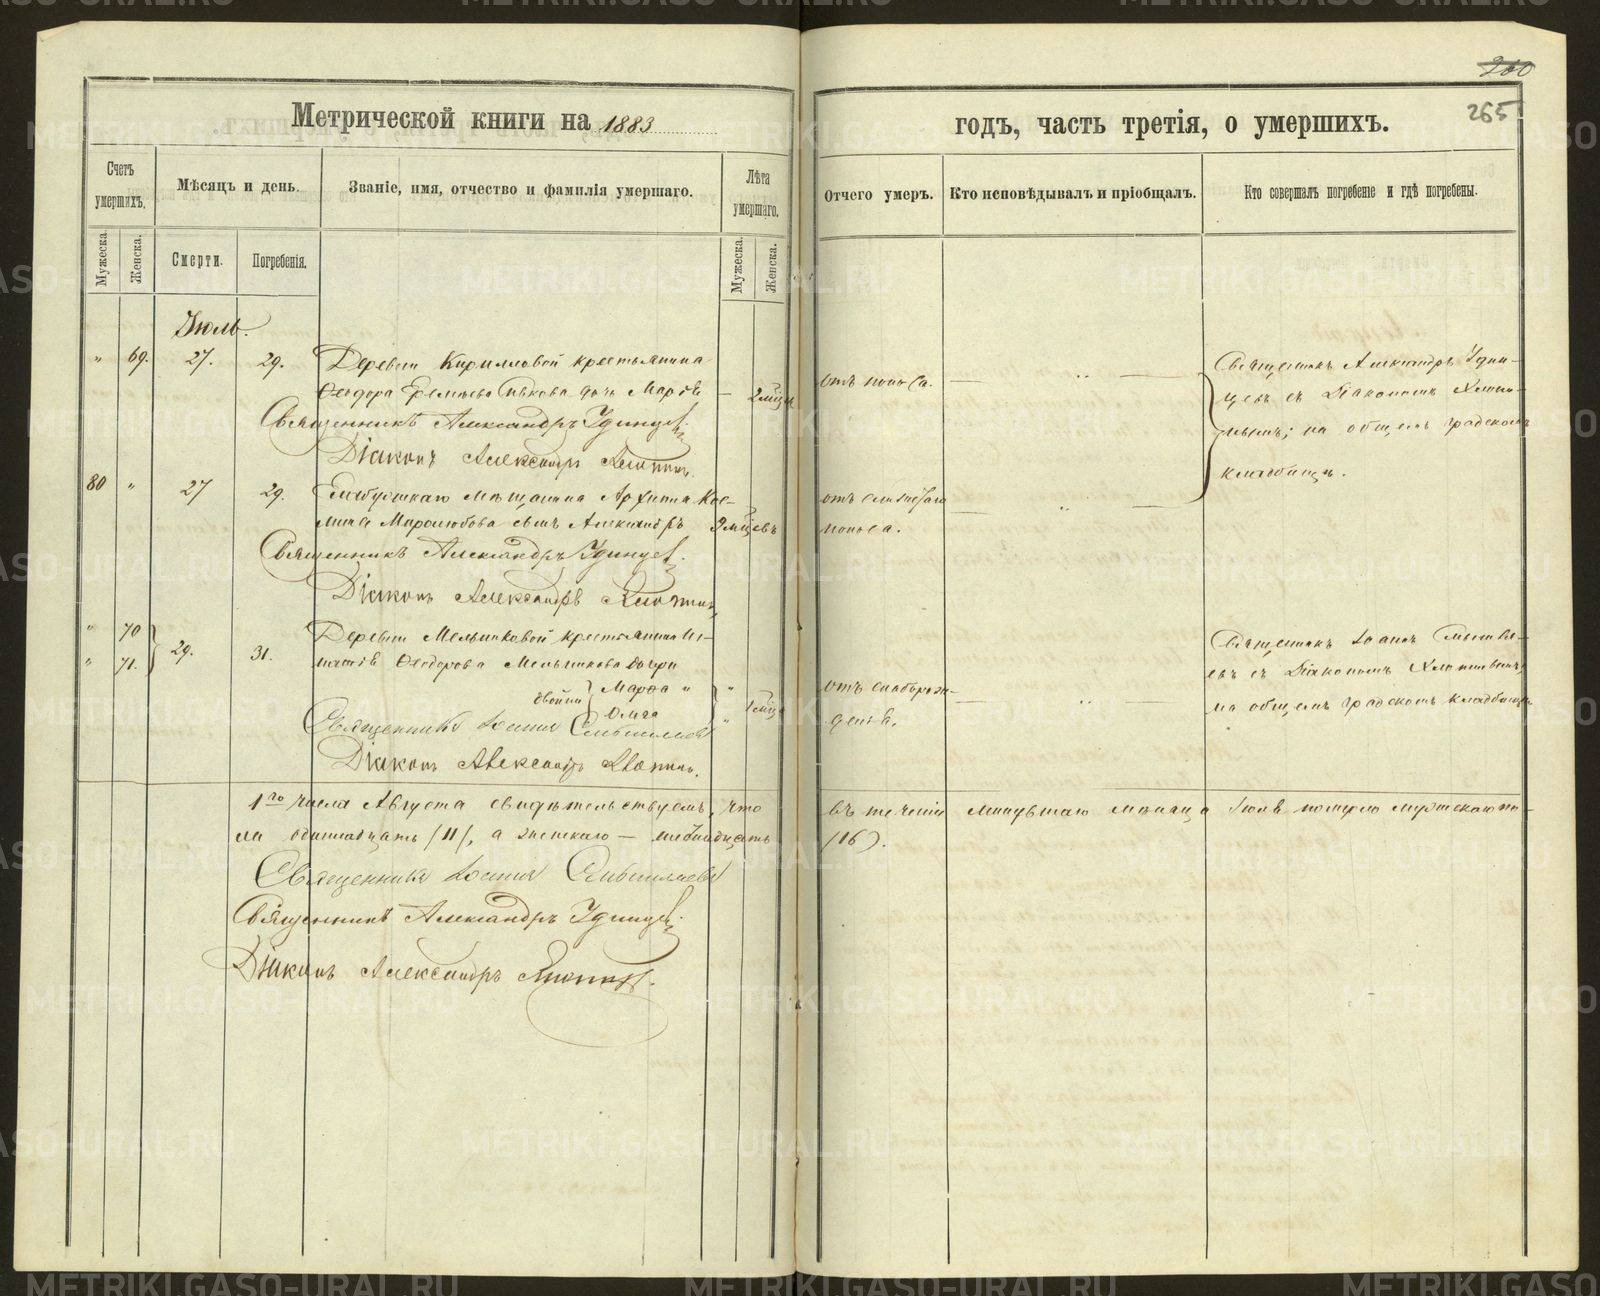 200
265
Метрической книги на 1883
годъ, часть третія, о умершихъ.
Счетъ умершихъ.
Мѣсяцъ и день.
Званіе, имя, отчество и фамилія умершаго.
Лѣта умершаго.
Отчего умеръ.
Кто исповѣдывалъ и пріобщалъ.
Кто совершалъ погребеніе и гдѣ погребены.
Мужеска.
Женска.
Смерти.
Погребенія.
Мужеска.
Женска.
Іюль.
" 69. 27. 29. Деревни Кирилловой крестьянина
Ѳеодора дочь Марія — 2 мѣц
отъ поноса. — " —
Священникъ Александръ Удин-
цевъ съ Діакономъ
на общемъ градскомъ
кладбищѣ.
Священникъ Александръ Удинцевъ.
Діаконъ Александръ
80 " 27 29. мѣщанина Архипа Кос-
мина Миролюбова сынъ Александръ 9 мѣцевъ
отъ
поноса. — " —
Священникъ Александръ Удинцевъ.
Діаконъ Александръ
" 70
" 71. 29. 31. Деревни Мельниковой крестьянина Иг-
натія Ѳеодорова Мельникова дочери
двойни Марѳа "
Ольга " 1 мѣц
отъ слаборож-
денія. — " —
Священникъ Іоаннъ
съ Діакономъ
на общемъ градскомъ кладбищѣ
Священникъ Іоаннъ
Діаконъ Александръ
1го числа Августа свидѣтельствуемъ, что въ теченіи минувшаго мѣсяца Іюля померло мужескаго по-
ла одиннадцать /11/, а женскаго — шестнадцать /16/.
Священникъ Іоаннъ
Священникъ Александръ Удинцевъ.
Діаконъ Александръ
METRIKI.GASO-URAL.RU